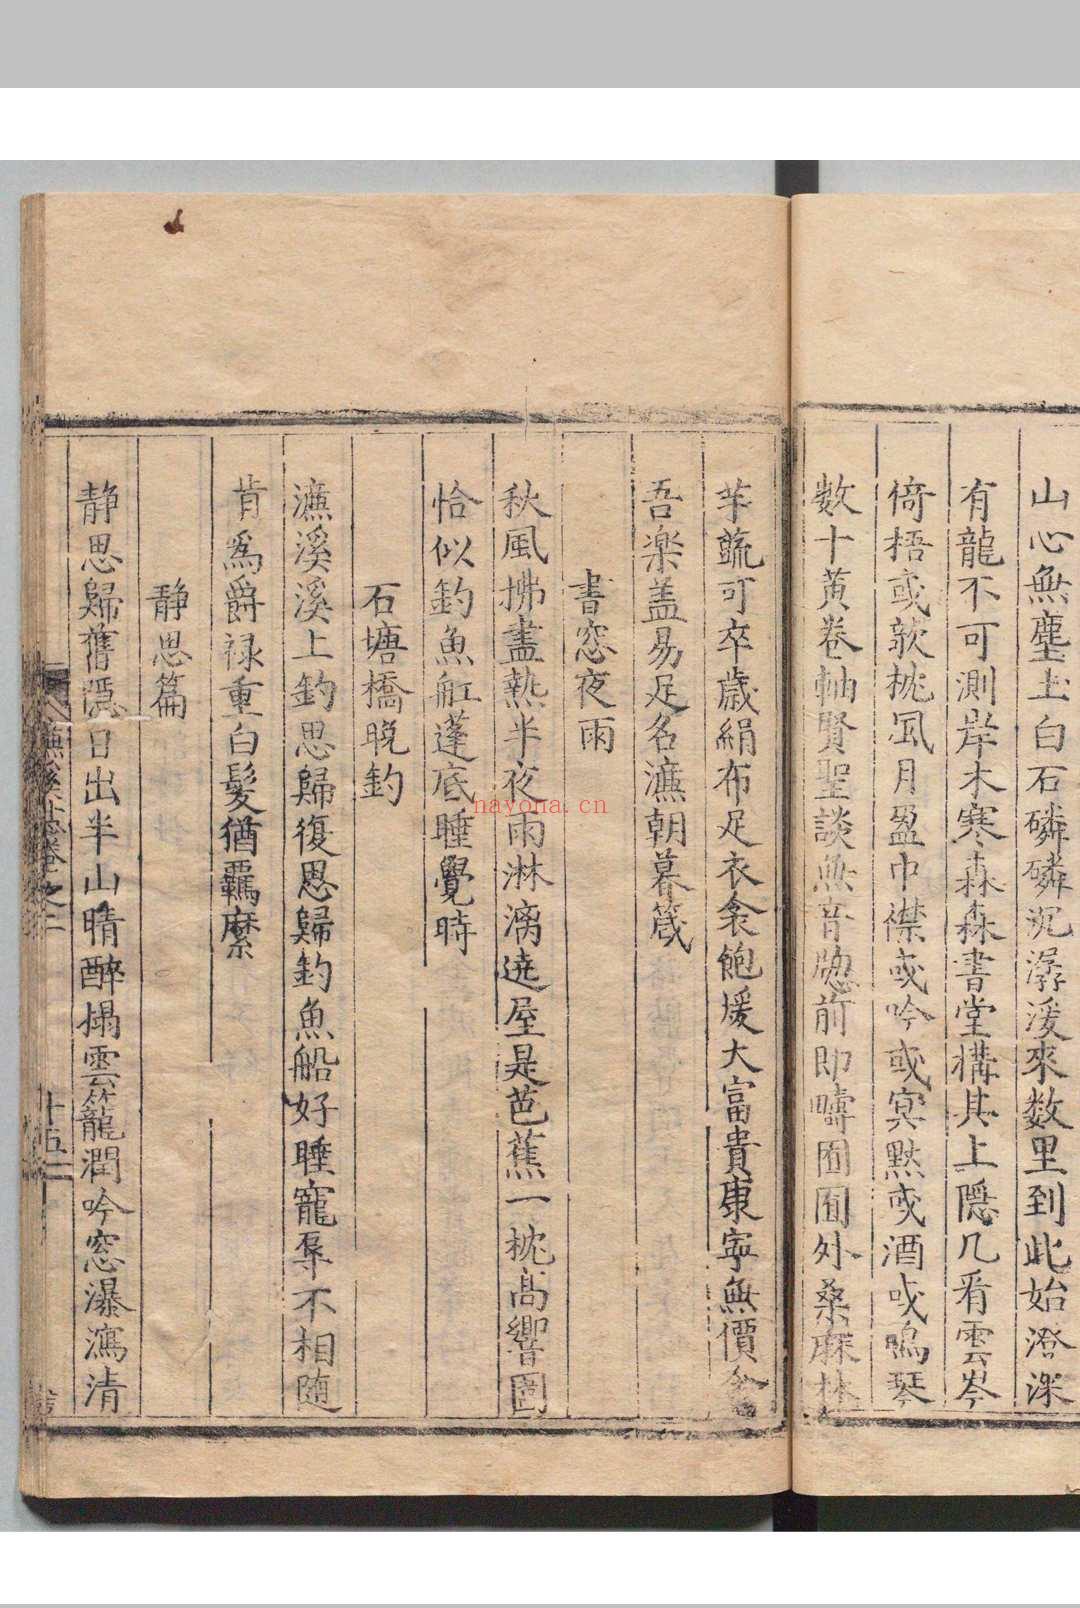 山心無塵土白石磷磷沉潺湲來数里到此始澄深
有龍不可測岸木寒森森書堂構其上隱几看雲岑
倚梧或欹枕風月盈巾襟或吟或冥黙或酒或鳴琴
数十黃卷軸賢聖談無音牕前即疇囿囿外桑麻林
芋蔬可卒歳絹布足衣衾飽煖大富貴康寜無價金
吾楽盖易足名濂朝暮箴
書窓夜雨
秋風拂盡熱半夜雨淋漓遶屋是芭蕉一枕高響圍
恰似釣魚舡蓬底睡覺時
石塘橋晩釣
濂溪溪上釣思歸復思歸釣魚船好睡寵辱不相随
肯為爵禄重白髮猶羈縻
静思篇
静思歸舊隠日出半山晴醉榻雲籠潤吟窓瀑瀉清
濂溪志卷之二
十五
nayona.cn